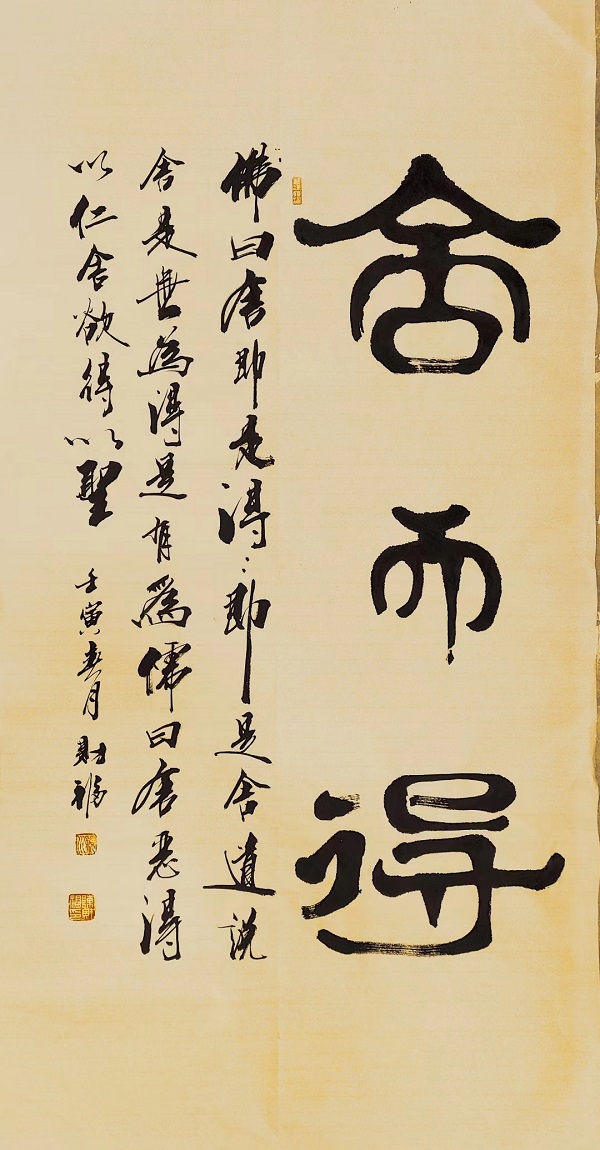 舍而得
佛曰舍即是得〻即是舍遺説
舍是無為得是有為儒曰舍惡得
以仁舍欲得以聖 壬寅春月 財福